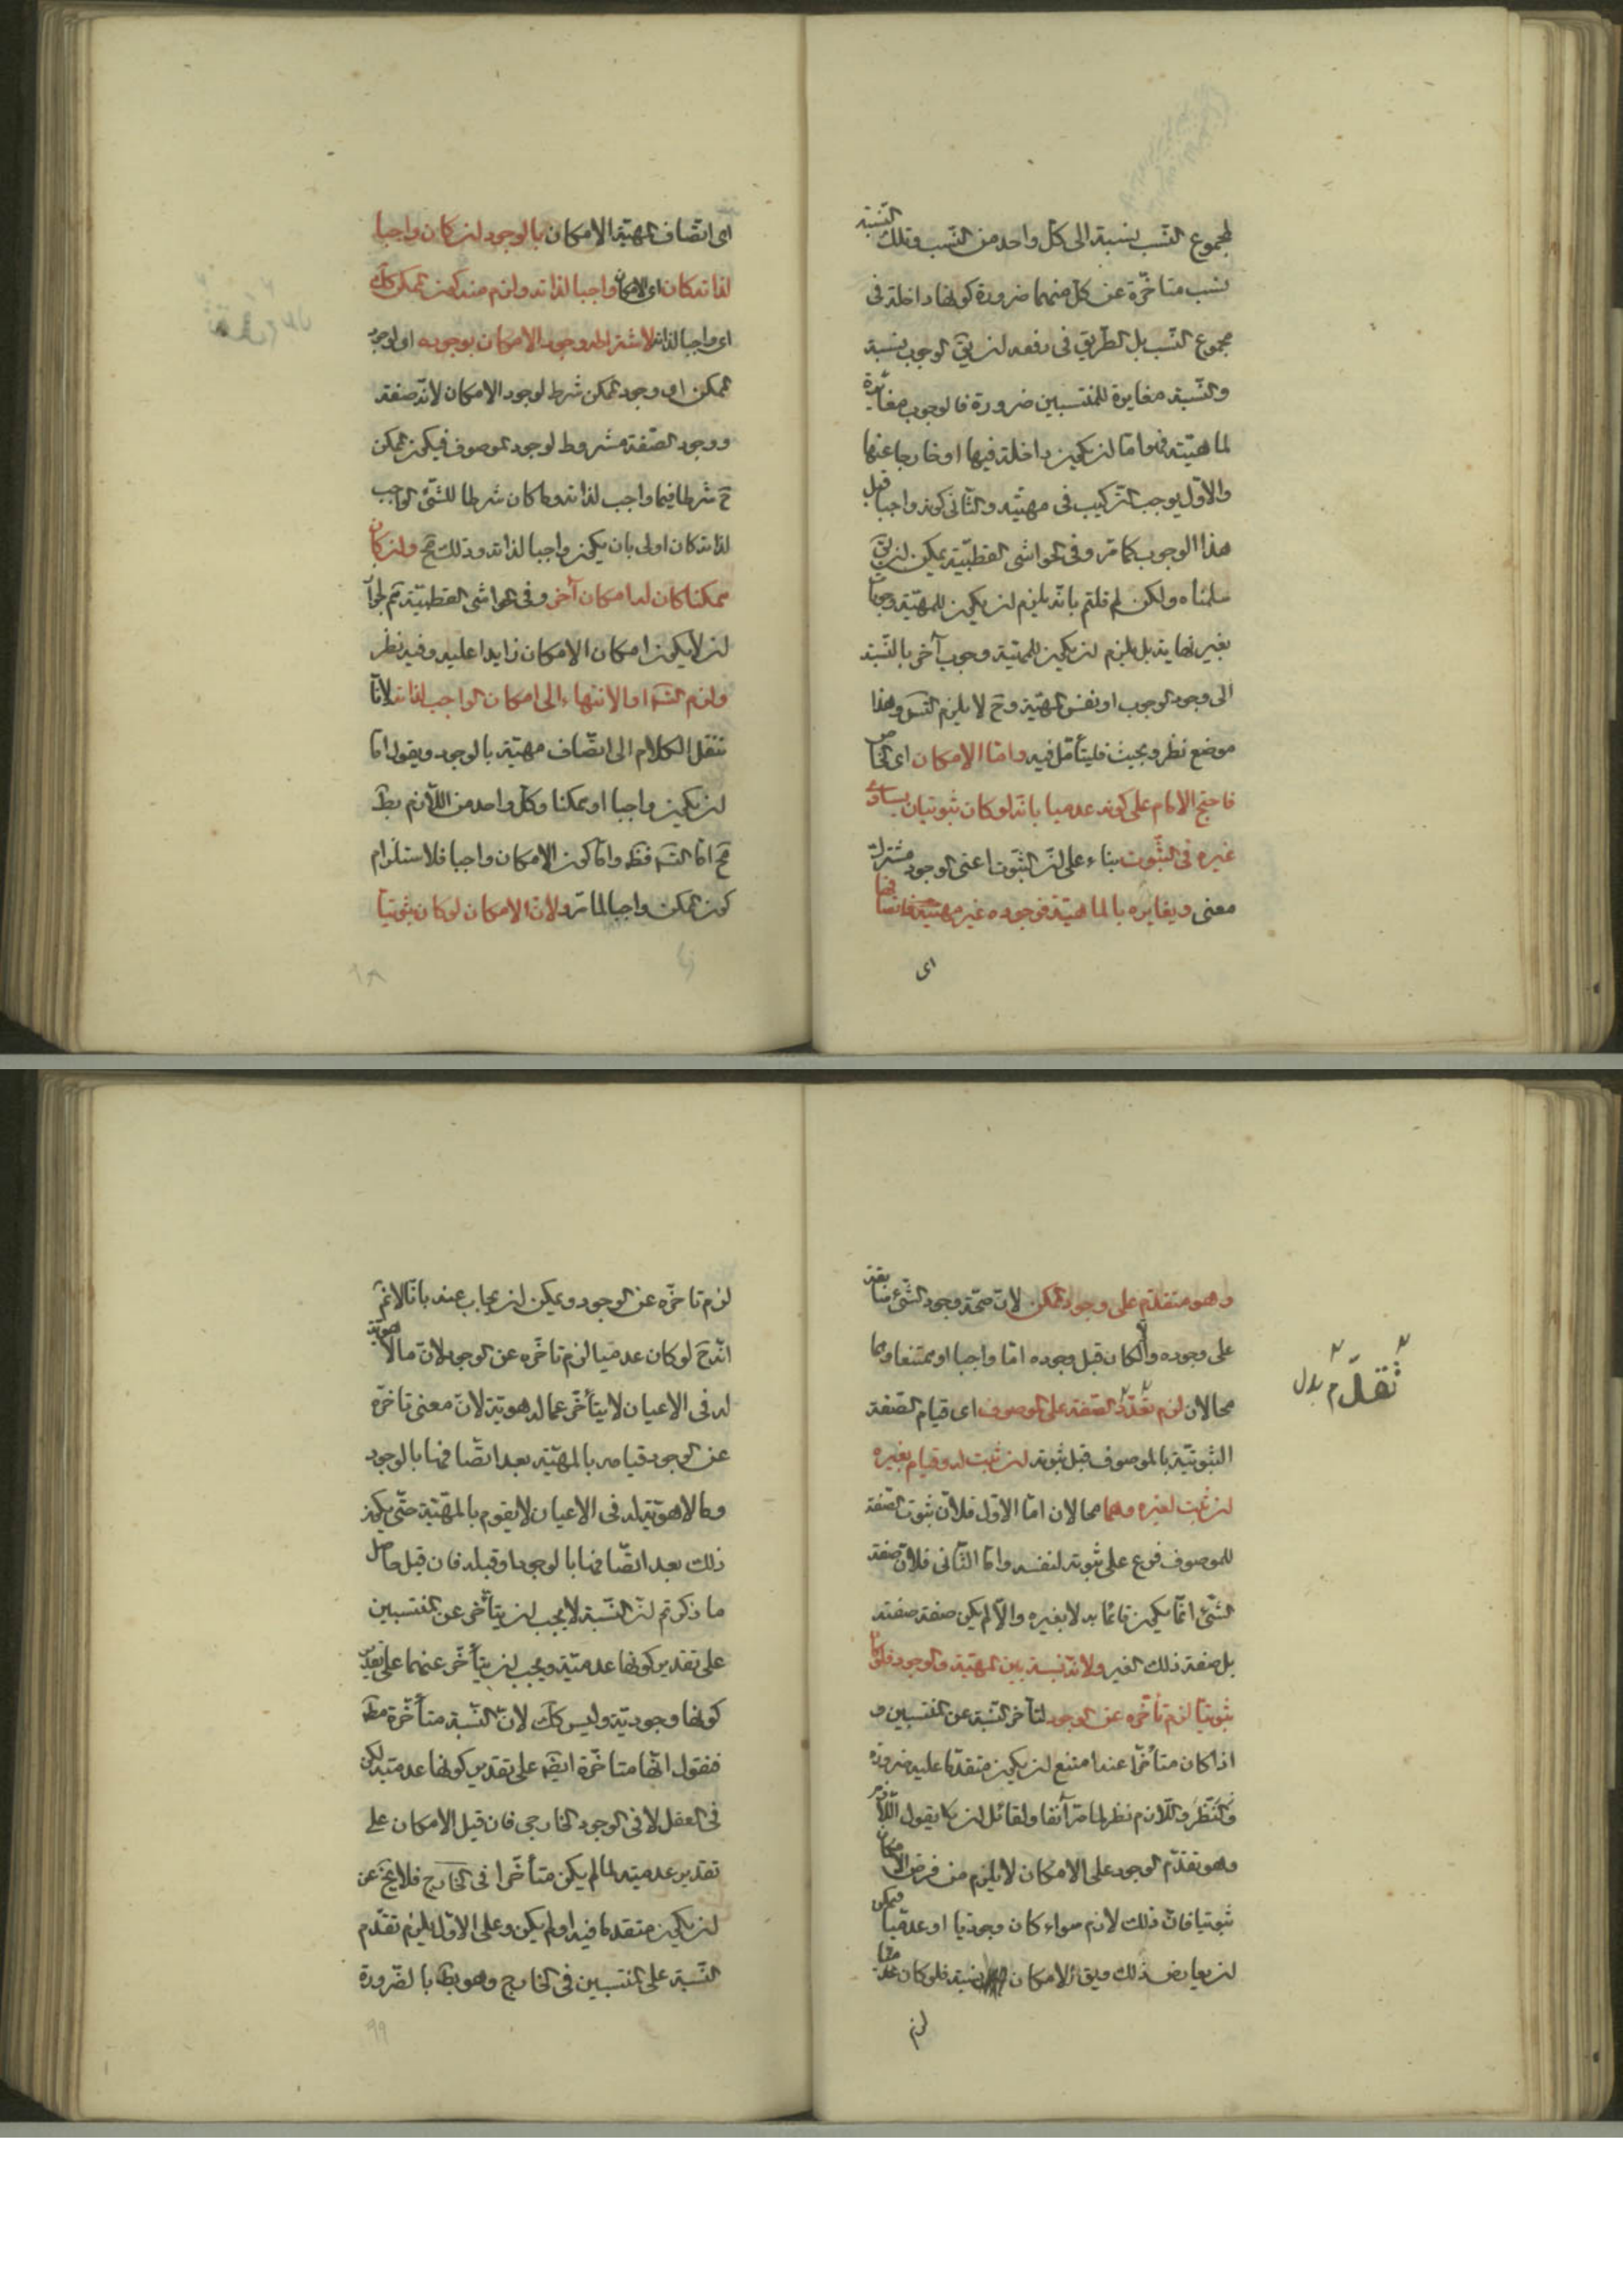 لمجموع النسب نسبة الى كل واحد من النسب وتلك النسبة
نسب متاخرة عن كل منهما ضرورة كونها داخلة فى
مجموع النسب بل الطريق فى دفعه ان يق الوجوب نسبة
والنسبة مغايرة للمنتسبين ضرورة فالوجوب مغايرة
لماهيته فهو اما ان يكون داخلة فيها او خارجا عنها
والاول يوجب التركيب فى مهيته والثانى كونه واجبا قبل
هذا الوجوب كما مر وفى الحواشى القطبية يمكن ان يق
سلمناه ولكن لم قلتم بانه يلزم ان يكون للمهية وجوبات
بغير نهاية بل يلزم ان يكون للمهية وجوب آخر بالنسبة
الى وجود الوجوب او نفس المهية وح لا يلزم التس وهذا
موضع نظر وبحث فليتأمل فيه واما الامكان اى الخاص
فاحتج الامام على كونه عدميا بانه لو كان ثبوتيان يساوى
غيره فى الثبوت بناء على ان الثبوت اعنى الوجود مشترك
معنى ويغايره بالماهية فوجوده غير مهيته فاتصافها
اى
اى اتصاف المهية الامكان بالوجود ان كان واجبا
لذاته كان اى الامكان واجبا لذاته ولزم منه كون الممكن كك
اى واجبا لذاته لاشتراط وجود الامكان بوجوده اى لوجود
الممكن اى وجود الممكن شرط لوجود الامكان لانه صفته
ووجود الصفة مشروط لوجود الموصوف فيكون الممكن
ح شرطا فيما واجب لذاته وما كان شرطا للشئ الواجب
لذاته كان اولى بان يكون واجبا لذاته وذلك مح وان كان
ممكنا كان له امكان آخر وفى الحواشى القطبية تم لجواز
ان لا يكون امكان الامكان زايدا عليه وفيه نظر
ولزم التس او الانتهاء الى امكان الواجب لذاته لانا
ننقل الكلام الى اتصاف مهية بالوجود ويقول اما
ان يكون واجبا او ممكنا وكل واحد من اللازم بط
مح اما التس فظ واما كون الامكان واجبا فلاستلزام
كون الممكن واجبا لما مر ولان الامكان لو كان ثبوتيا
٩٨
وهو متقدم على وجود الممكن لان صحة وجود الشئ سابقة
على وجوده والا كان قبل وجوده اما واجبا او ممتنعا وهما
محالان لزم تقدم الصفة على الموصوف اى قيام الصفة
الثبوتية بالموصوف قبل ثبوته ان ثبت له وقيام بغيره
ان ثبت لغيره وهما محالان اما الاول فلان ثبوت الصفة
للموصوف فرع على ثبوته لنفسه واما الثانى فلان صفة
الشئ انما يكون قائما به لا بغيره والا لم يكن صفة صفته
بل صفة ذلك الغير ولانه نسبة بين المهية والوجود فلو كان
ثبوتيا لزم تأخره عن الوجود لتأخر النسبة عن المنتسبين و
اذا كان متأخرا عنه امتنع ان يكون متقدما عليه ضرورة
والنظر واللازم نظر لما مر آنفا ولقائل ان يقول اللازم
وهو تقدم الوجود على الامكان لا يلزم من فرض الامكان
ثبوتيا فان ذلك لازم سواء كان وجوديا او عدميا فيمكن
ان يعارض ذلك ويق الامكان نسبة فلو كان عدميا
لزم
تقدم بدل
لزم تاخره عن الوجود ويمكن ان يجاب عنه بانا لا نم
انه ح لو كان عدميا لزم تاخره عن الوجود لان ما لا هوية
له فى الاعيان لا يتأخر عما له هوية لان معنى تاخره
عن الوجود قيامه بالمهية بعد اتصافها بالوجود
وما لا هوية له فى الاعيان لا يقوم بالمهية حتى يكون
ذلك بعد اتصافها بالوجود او قبله فان قبل حاصل
ما ذكرتم ان النسبة لا يجب ان يتأخر عن المنتسبين
على تقدير كونها عدمية ويجب ان يتأخر عنهما على تقدير
كونها وجودية وليس كك لان النسبة متأخرة مط
فنقول انها متاخرة ايضا على تقدير كونها عدمية لكن
فى العقل لا فى الوجود الخارجى فان قيل الامكان على
تقدير عدميته لما لم يكن متأخرا فى الخارج فلا يخ عن
ان يكون متقدما فيه او لم يكن وعلى الاول يلزم تقدم
النسبة على المنتسبين فى الخارج وهو بط بالضرورة
٩٩